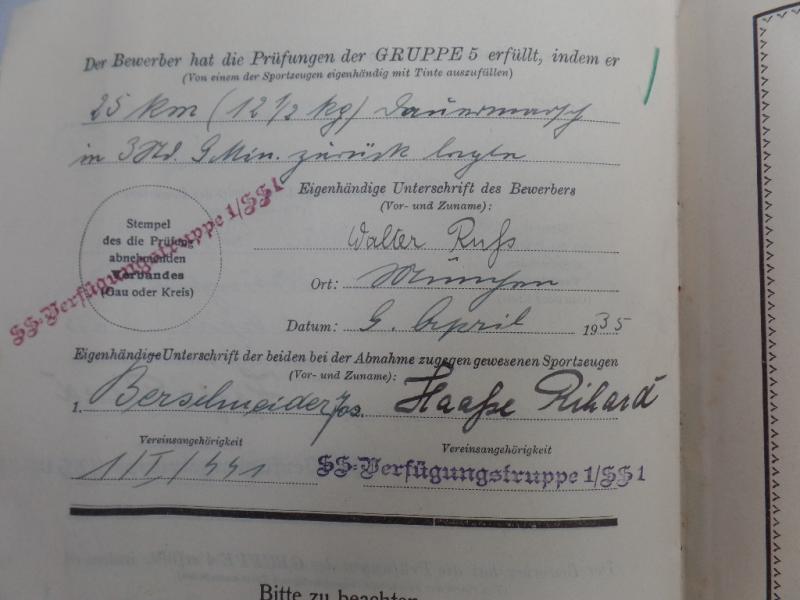 Der Bewerber hat die Prüfungen der GRUPPE 5 erfüllt, indem er
(Von einem der Sportzeugen eigenhändig mit Tinte auszufüllen)
25 km (12 1/2 kg) Dauermarsch
in 3 Std. 9 Min. zurück legte
Eigenhändige Unterschrift des Bewerbers
(Vor- und Zuname):
Walter Rufs
Stempel
des die Prüfung
abnehmenden
Verbandes
(Gau oder Kreis)
SS-Verfügungstruppe 1/SS 1
Ort: München
Datum: 9. April 1935
Eigenhändige Unterschrift der beiden bei der Abnahme zugegen gewesenen Sportzeugen
(Vor- und Zuname):
1. Haaße Rihard
Vereinsangehörigkeit
Vereinsangehörigkeit
SS-Verfügungstruppe 1/SS 1
Bitte zu beachten